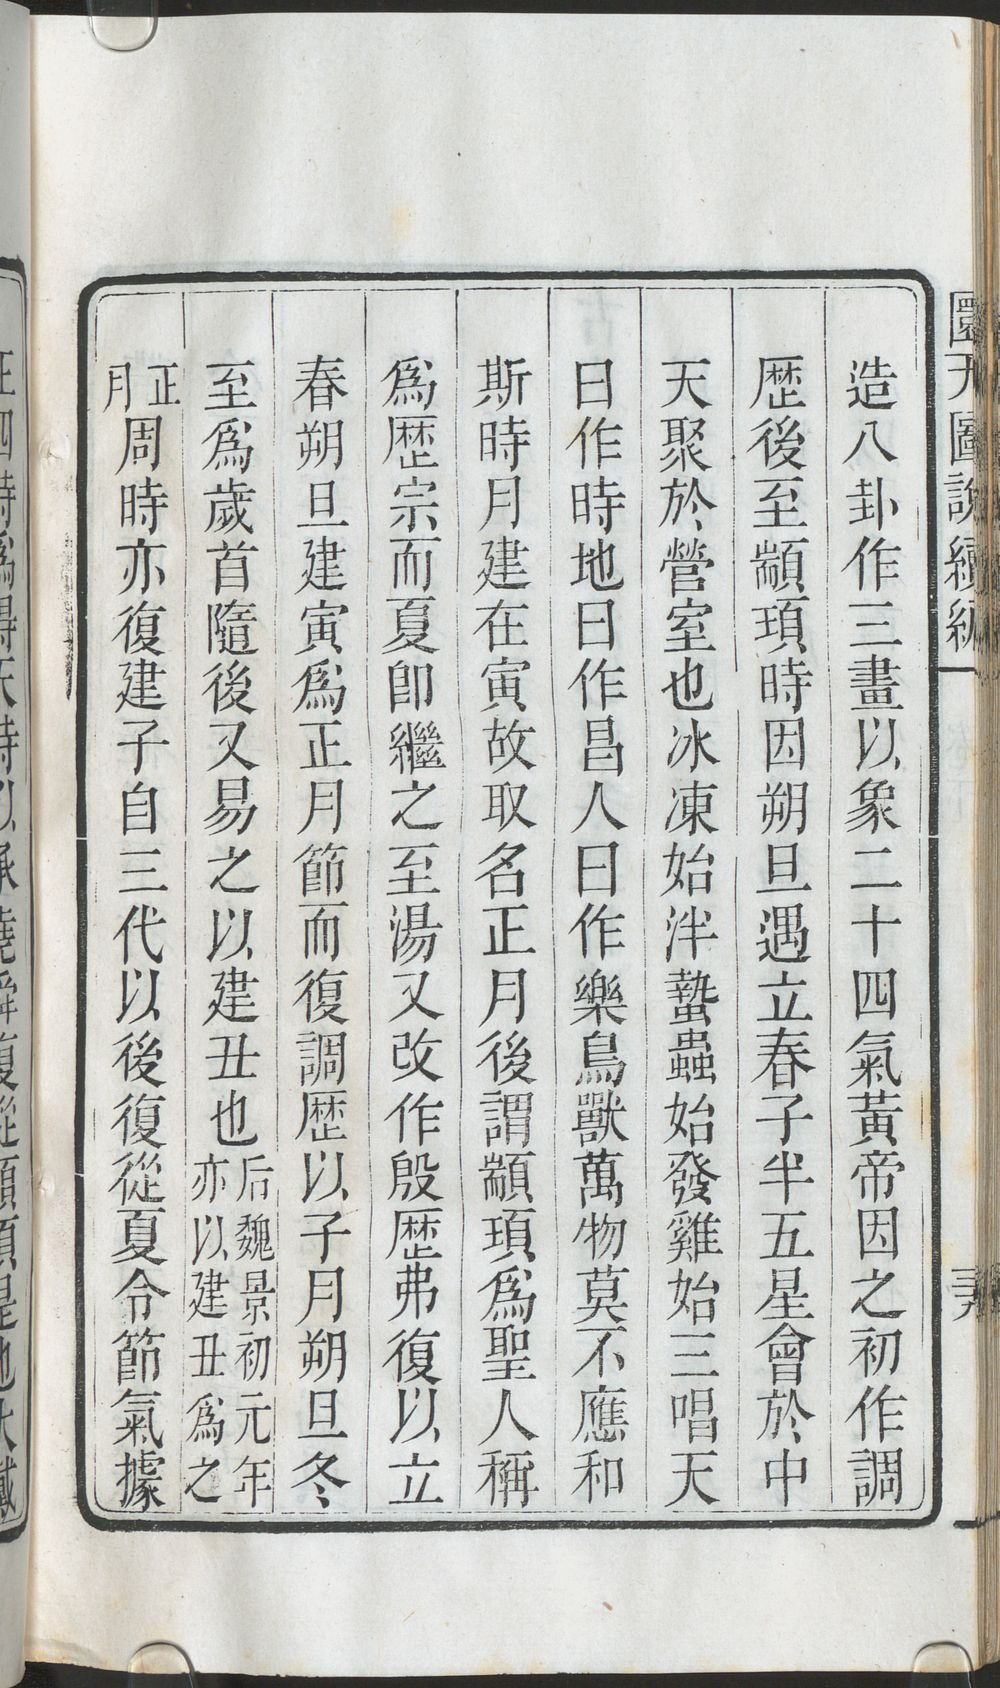 造八卦作三畫以象二十四氣黃帝因之初作調
歴後至顓頊時因朔旦遇立春子半五星會於中
天聚於營室也冰凍始泮蟄蟲始發雞始三唱天
日作時地日作昌人日作樂鳥獸萬物莫不應和
斯時月建在寅故取名正月後謂顓頊爲聖人稱
爲歴宗而夏卽繼之至湯又改作殷歴弗復以立
春朔旦建寅爲正月節而復調歴以子月朔旦冬
至爲歲首隨後又易之以建丑也后魏景初元年亦以建丑爲之
正月周時亦復建子自三代以後復從夏令節氣據
圖說續編